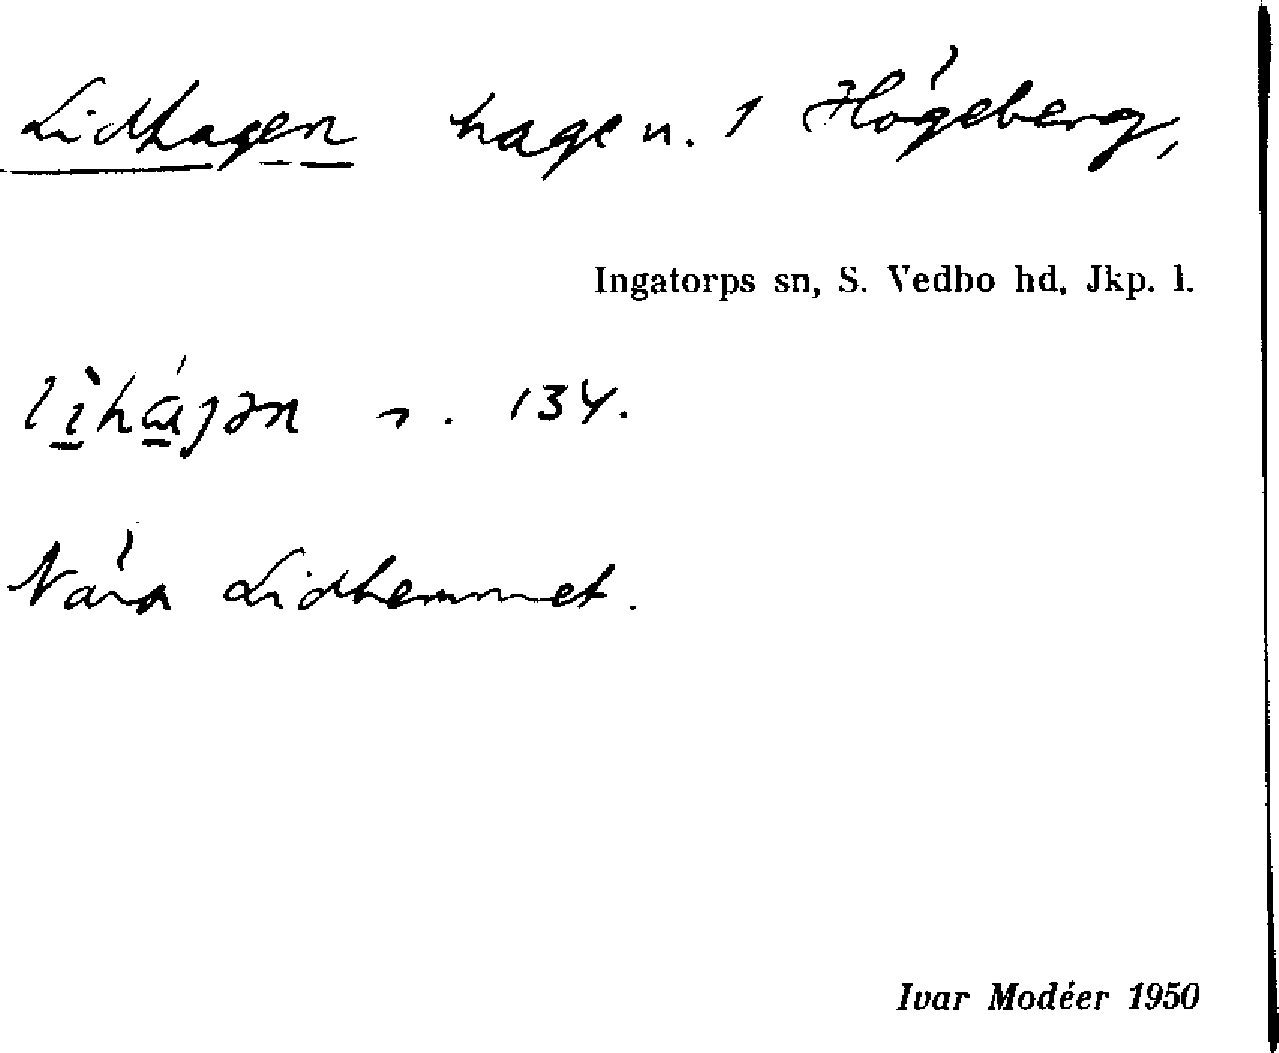 Lidhagen hage n. 1 Högeberg,
Ingatorps sn, S. Vedbo hd, Jkp. l.
n. 134.
Nära Lidhemmet.
Ivar Modéer 1950